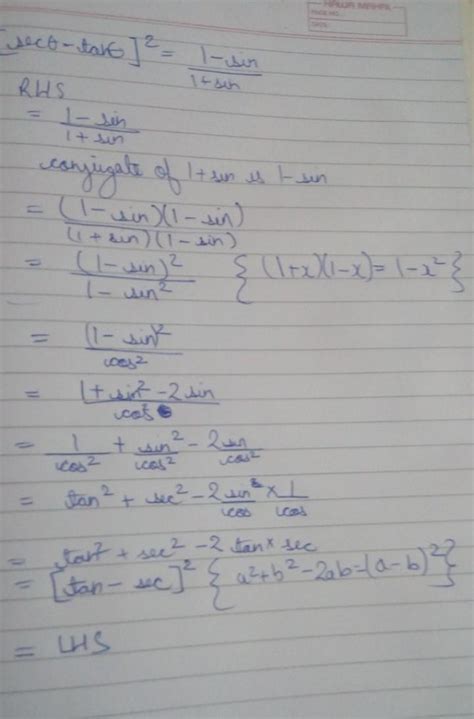 PAGE NO.:
DATE:
[secθ - tanθ]² = (1 - sin)/(1 + sin)
RHS
= (1 - sin)/(1 + sin)
conjugate of 1 + sin is 1 - sin
= (1 - sin)(1 - sin)/(1 + sin)(1 - sin)
= (1 - sin)²/1 - sin² {(1+x)(1-x) = 1 - x²}
= (1 - sin)²/cos²
= 1 + sin² - 2 sin/cos²
= 1/cos² + sin²/cos² - 2sin/cos²
= tan² + sec² - 2 sin/cos × 1/cos
= tan² + sec² - 2 tan × sec
= [tan - sec]² {a² + b² - 2ab = (a - b)²}
= LHS